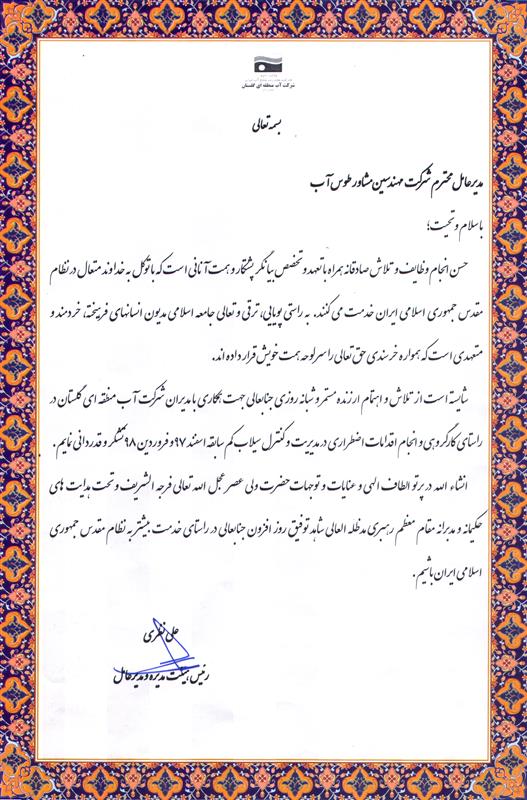 شرکت آب منطقه ای گلستان
بسمه تعالی
مدیرعامل محترم شرکت مهندسین مشاور طوس آب
با سلام و تحیت؛
حسن انجام وظایف و تلاش صادقانه همراه با تعهد و تخصص بیانگر پشتکار و همت آنانی است که با توکل به خداوند متعال در نظام
مقدس جمهوری اسلامی ایران خدمت می کنند. به راستی پویایی، ترقی و تعالی جامعه اسلامی مدیون انسانهای فرهیخته، خردمند و
متعهدی است که همواره خرسندی حق تعالی را سرلوحه همت خویش قرار داده اند.
شایسته است از تلاش و اهتمام ارزنده مستمر و شبانه روزی جنابعالی جهت همکاری با مدیران شرکت آب منطقه ای گلستان در
راستای کارگروهی و انجام اقدامات اضطراری در مدیریت و کنترل سیلاب کم سابقه اسفند ۹۷ و فروردین ۹۸ تشکر و قدردانی نمایم.
انشاء الله در پرتو الطاف الهی و عنایات و توجهات حضرت ولی عصر عجل الله تعالی فرجه الشریف و تحت هدایت های
حکیمانه و مدبرانه مقام معظم رهبری مدظله العالی شاهد توفیق روز افزون جنابعالی در راستای خدمت بیشتر به نظام مقدس جمهوری
اسلامی ایران باشیم.
علی نظری
رئیس هیئت مدیره و مدیرعامل